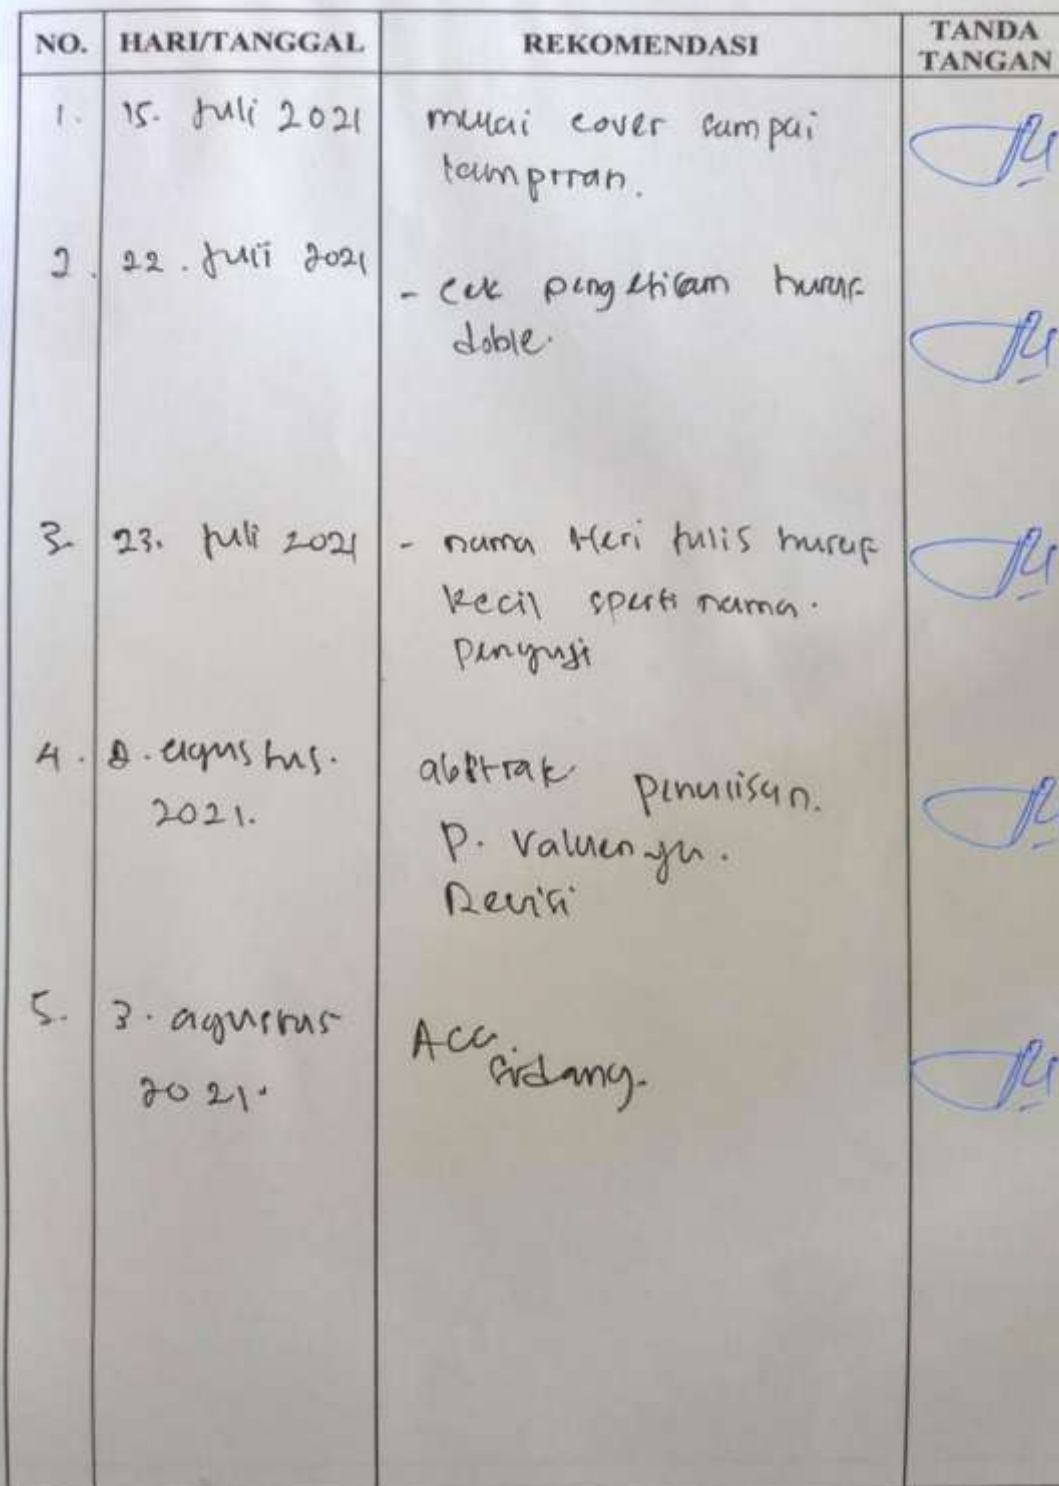 NO. HARI/TANGGAL REKOMENDASI TANDA TANGAN
1. 15. Juli 2021 mulai cover sampai
lampiran.
2. 22. Juli 2021
- cek pengetikan huruf
doble.
3. 23. Juli 2021 - nama Heri tulis huruf
kecil sperti nama.
penguji
4. agustus. abstrak penulisan.
2021. P. Valuenya.
Revisi
5. 3. agustus ACC
sidang.
2021.